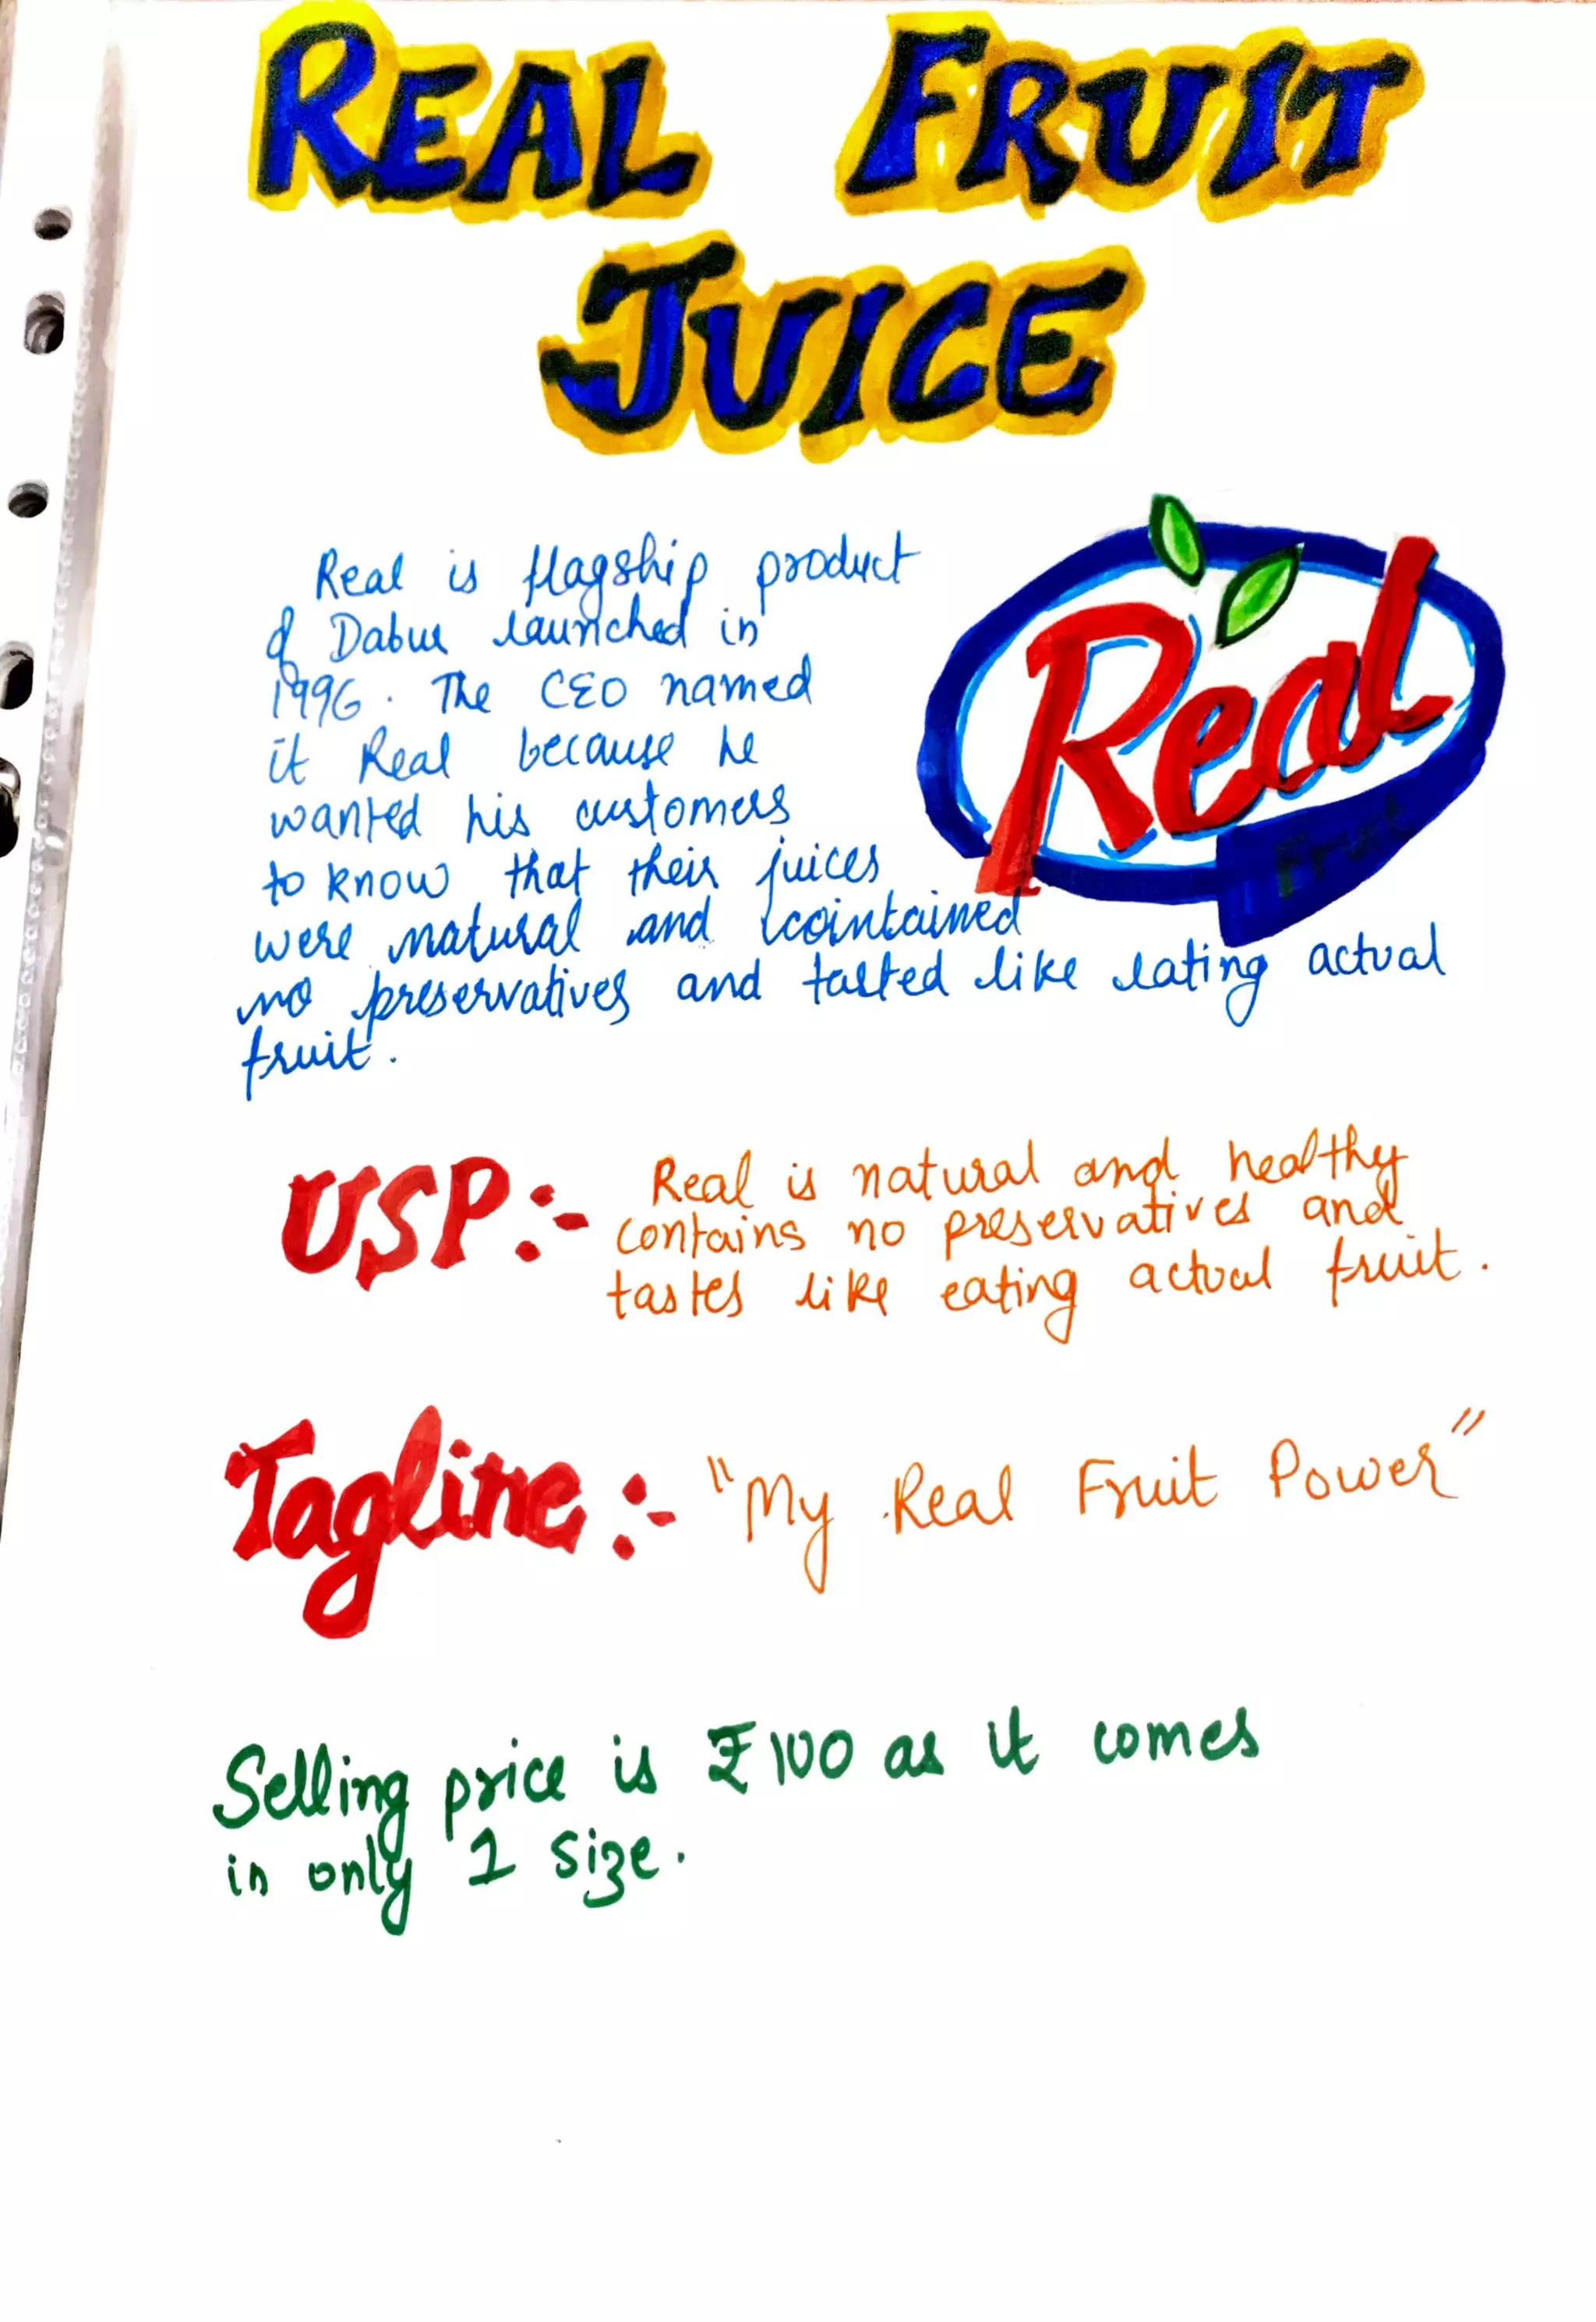 REAL FRUIT
JUICE
Real
Real is flagship product
of Dabur launched in
1996. The CEO named
it Real because he
wanted his customers
to know that their juices
were natural and cointained
no preservatives and tasted like eating actual
fruit.
USP:- Real is natural and healthy
contains no preservatives and
tastes like eating actual fruit.
Tagline:- "My Real Fruit Power"
Selling price is ₹100 as it comes
in only 1 size.